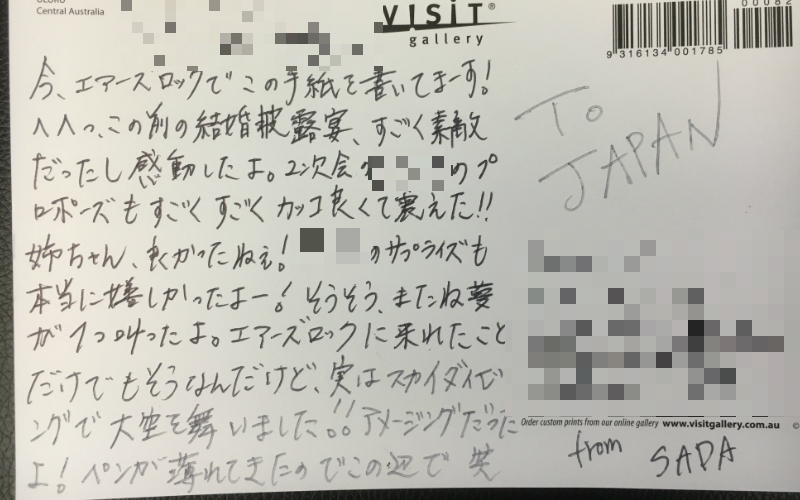 ULURU
Central Australia
VISIT®
gallery
00082
9 316134 001785
今、エアーズロックでこの手紙を書いてまーす!
へへっ、この前の結婚披露宴、すごく素敵
だったし感動したよ。2次会の のプ
ロポーズもすごくすごくカッコ良くて震えた!!
姉ちゃん、良かったねぇ! のサプライズも
本当に嬉しかったよー! そうそう、またね夢
が1つ叶ったよ。エアーズロックに来れたこと
だけでもそうなんだけど、実はスカイダイビ
ングで大空を舞いました!! アメージングだった
よ! ペンが薄れてきたのでこの辺で 笑
To
JAPAN
Order custom prints from our online gallery www.visitgallery.com.au ©
from SADA